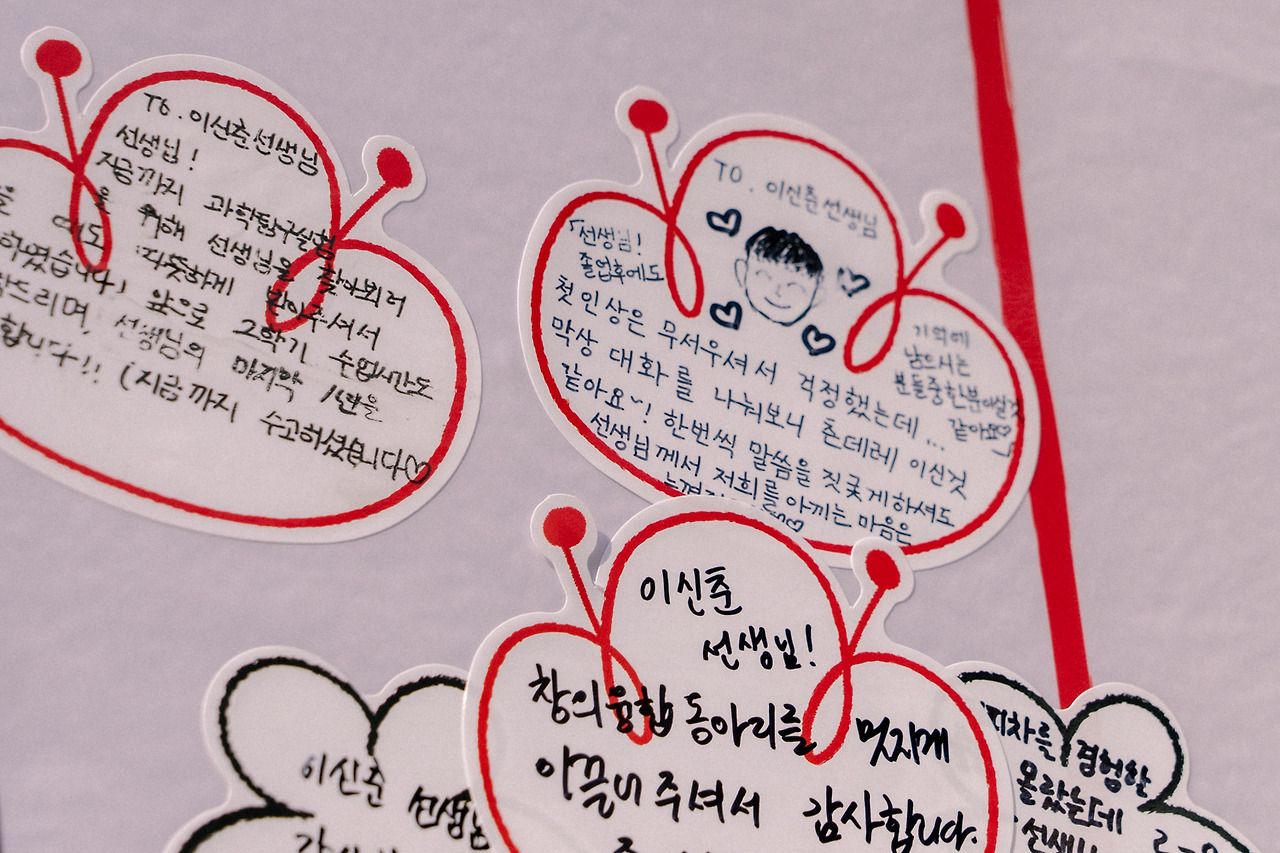 TO. 이신춘선생님
선생님!
지금까지 과학탐구실험
을 위해 선생님을 찾아뵈러
때도 따뜻하게 맞이주셔서
하였습니다, 앞으로 2학기 수업시간도
드리며, 선생님의 마지막 1년을
합니다!! (지금까지 수고하셨습니다♡
TO. 이신춘선생님
「선생님!
졸업후에도
기억에
남으시는
분들중한분이실것
같아요♡」
첫인상은 무서우셔서 걱정했는데...
막상 대화를 나눠보니 츤데레 이신것
같아요~! 한번씩 말씀을 짓궂게하셔도
선생님께서 저희를아끼는 마음은
이신춘
선생님!
창의융합 동아리를 멋지게
이끌어 주셔서 감사합니다.
이신춘 선생님
경험한
몰랐는데
선생님